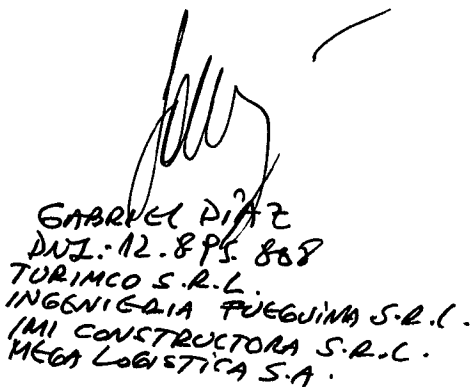 GABRIEL DÍAZ
DNI.: 12.895.808
TURIMCO S.R.L.
INGENIERIA FUEGUINA S.R.L.
IMI CONSTRUCTORA S.R.L.
MEGA LOGISTICA S.A.